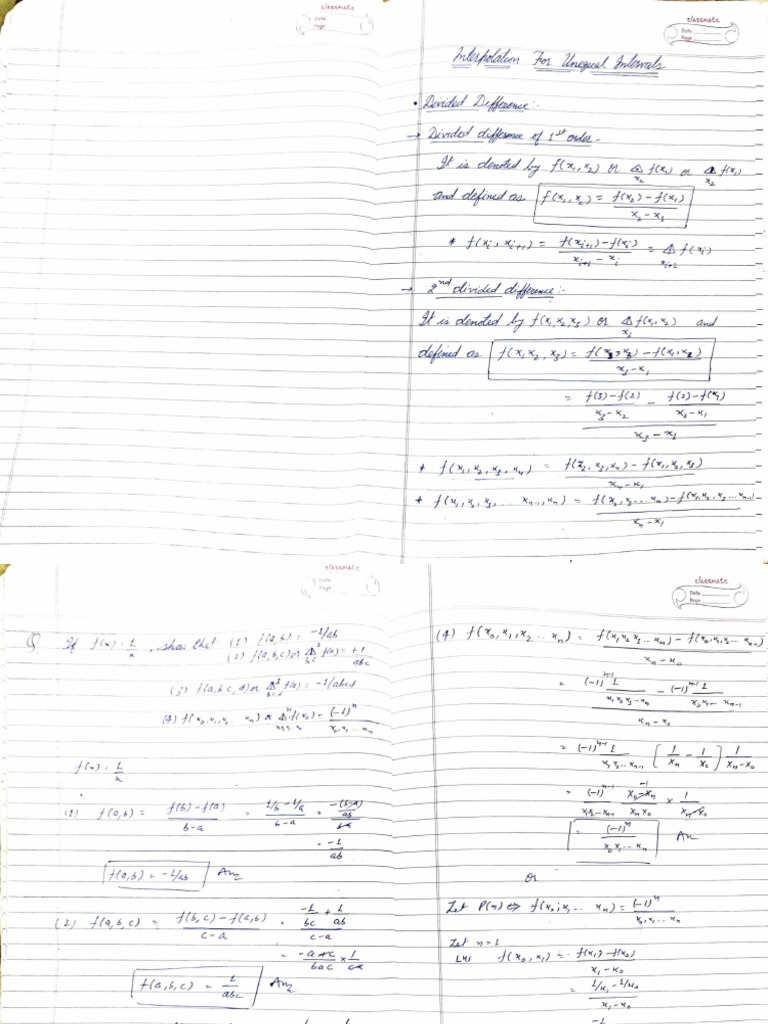 classmate
Date
Page
classmate
Date
Page
Interpolation For Unequal Intervals
• Divided Difference:-
→ Divided difference of 1st order -
It is denoted by f(x₁,x₂) or Δ f(x₁) or Δ f(x₁)
x₂ x₂
and defined as f(x₁,x₂) = f(x₂) - f(x₁)
x₂ - x₁
* f(xᵢ, xᵢ₊₁) = f(xᵢ₊₁) - f(xᵢ) = Δ f(xᵢ)
xᵢ₊₁ - xᵢ xᵢ₊₁
→ 2nd divided difference:-
It is denoted by f(x₁x₂x₃) or Δ f(x₁,x₂) and
x₃
defined as f(x₁x₂,x₃) = f(x₂,x₃) - f(x₁,x₂)
x₃ - x₁
= f(3) - f(2) - f(2) - f(x₁)
x₃ - x₂ x₂ - x₁
x₃ - x₁
* f(x₁,x₂,x₃,x₄) = f(x₂,x₃,x₄) - f(x₁,x₂,x₃)
x₄ - x₁
* f(x₁,x₂,x₃,.... xₙ₋₁,xₙ) = f(x₂,x₃....xₙ) - f(x₁,x₂,x₃...xₙ₋₁)
xₙ - x₁
classmate
Date
Page
Q If f(x) = 1/x , show that (1) f(a,b) = -1/ab
(2) f(a,b,c) or Δ² f(a) = +1/abc
bc
(3) f(a,b,c,d) or Δ³ f(a) = -1/abcd
bcd
(4) f(x₀,x₁,x₂ .. xₙ) or Δⁿ f(x₀) = (-1)ⁿ
x₀,x₁...xₙ
f(x) = 1/x
(1) f(a,b) = f(b) - f(a) = 1/b - 1/a = -(b-a)/ab
b-a b-a b-a
= -1/ab
f(a,b) = -1/ab Ans
(2) f(a,b,c) = f(b,c) - f(a,b) = -1/bc + 1/ab
c-a c-a
= -a+c × 1
bac c-a
f(a,b,c) = 1/abc Ans
classmate
Date
Page
(4) f(x₀,x₁,x₂ ... xₙ) = f(x₁x₂x₃...xₙ) - f(x₀,x₁,x₂...xₙ₋₁)
xₙ - x₀
= (-1)ⁿ⁻¹ 1 - (-1)ⁿ⁻¹ 1
x₁x₂x₃..xₙ x₀x₁... xₙ₋₁
xₙ - x₀
= (-1)ⁿ⁻¹ 1 [1/xₙ - 1/x₀] 1
x₁x₂...xₙ₋₁ xₙ-x₀
= (-1)ⁿ⁻¹ x₀-xₙ × 1
x₁x₂-xₙ₋₁ xₙx₀ xₙ-x₀
= (-1)ⁿ Ans
x₀x₁...xₙ
or
Let P(n) ⇔ f(x₀,x₁... xₙ) = (-1)ⁿ
x₀,x₁...xₙ
Let n=1
LHS f(x₀,x₁) = f(x₁) - f(x₀)
x₁ - x₀
= 1/x₁ - 1/x₀
x₁ - x₀
-1